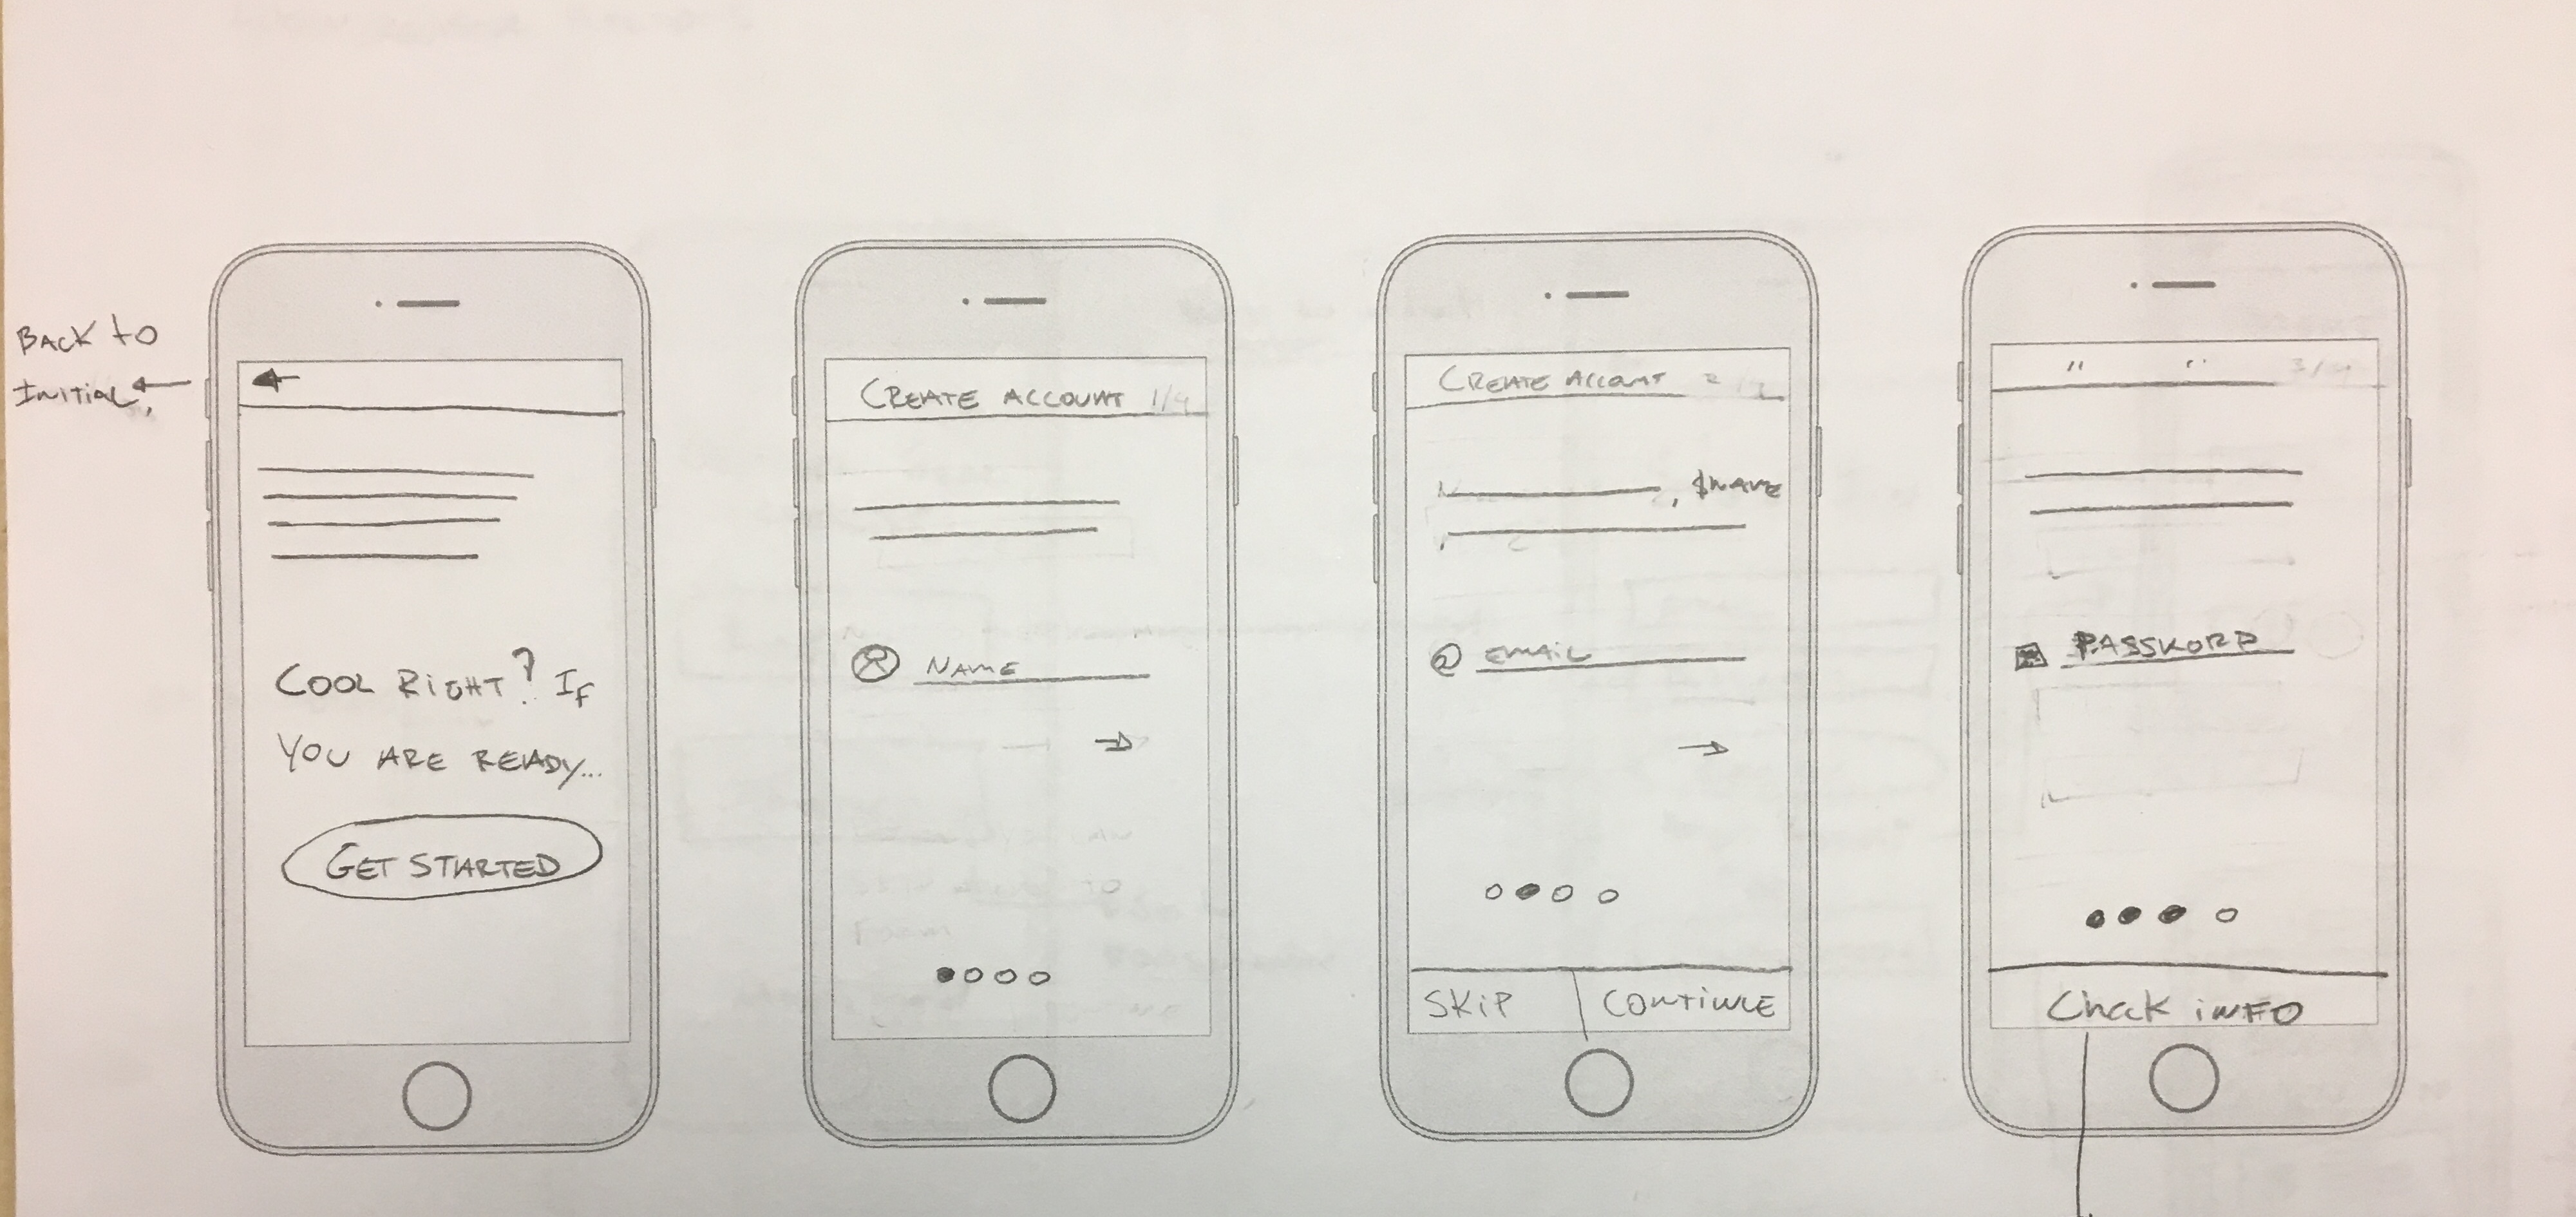 BACK to
INITIAL.
COOL RIGHT? IF
YOU ARE READY...
GET STARTED
CREATE ACCOUNT 1/4
NAME
CREATE ACCOUNT 2/
, $NAME
@ EMAIL
SKIP
CONTINUE
" " 3/4
PASSWORD
Check INFO